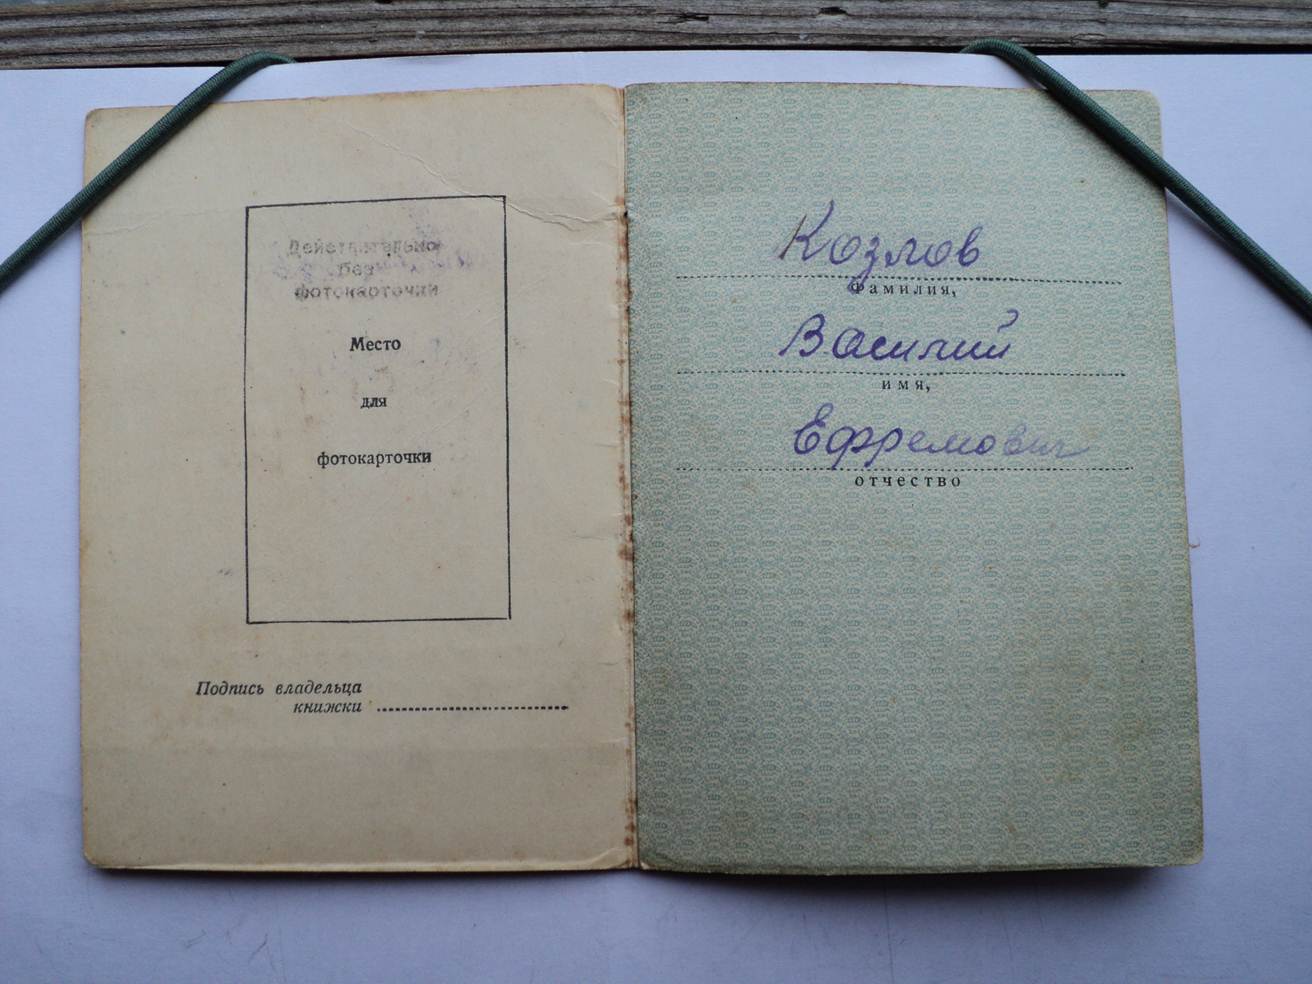 Действительно
без
фотокарточки
Место
для
фотокарточки
Подпись владельца
книжки
Козлов
фамилия,
Василий
имя,
Ефремович
отчество